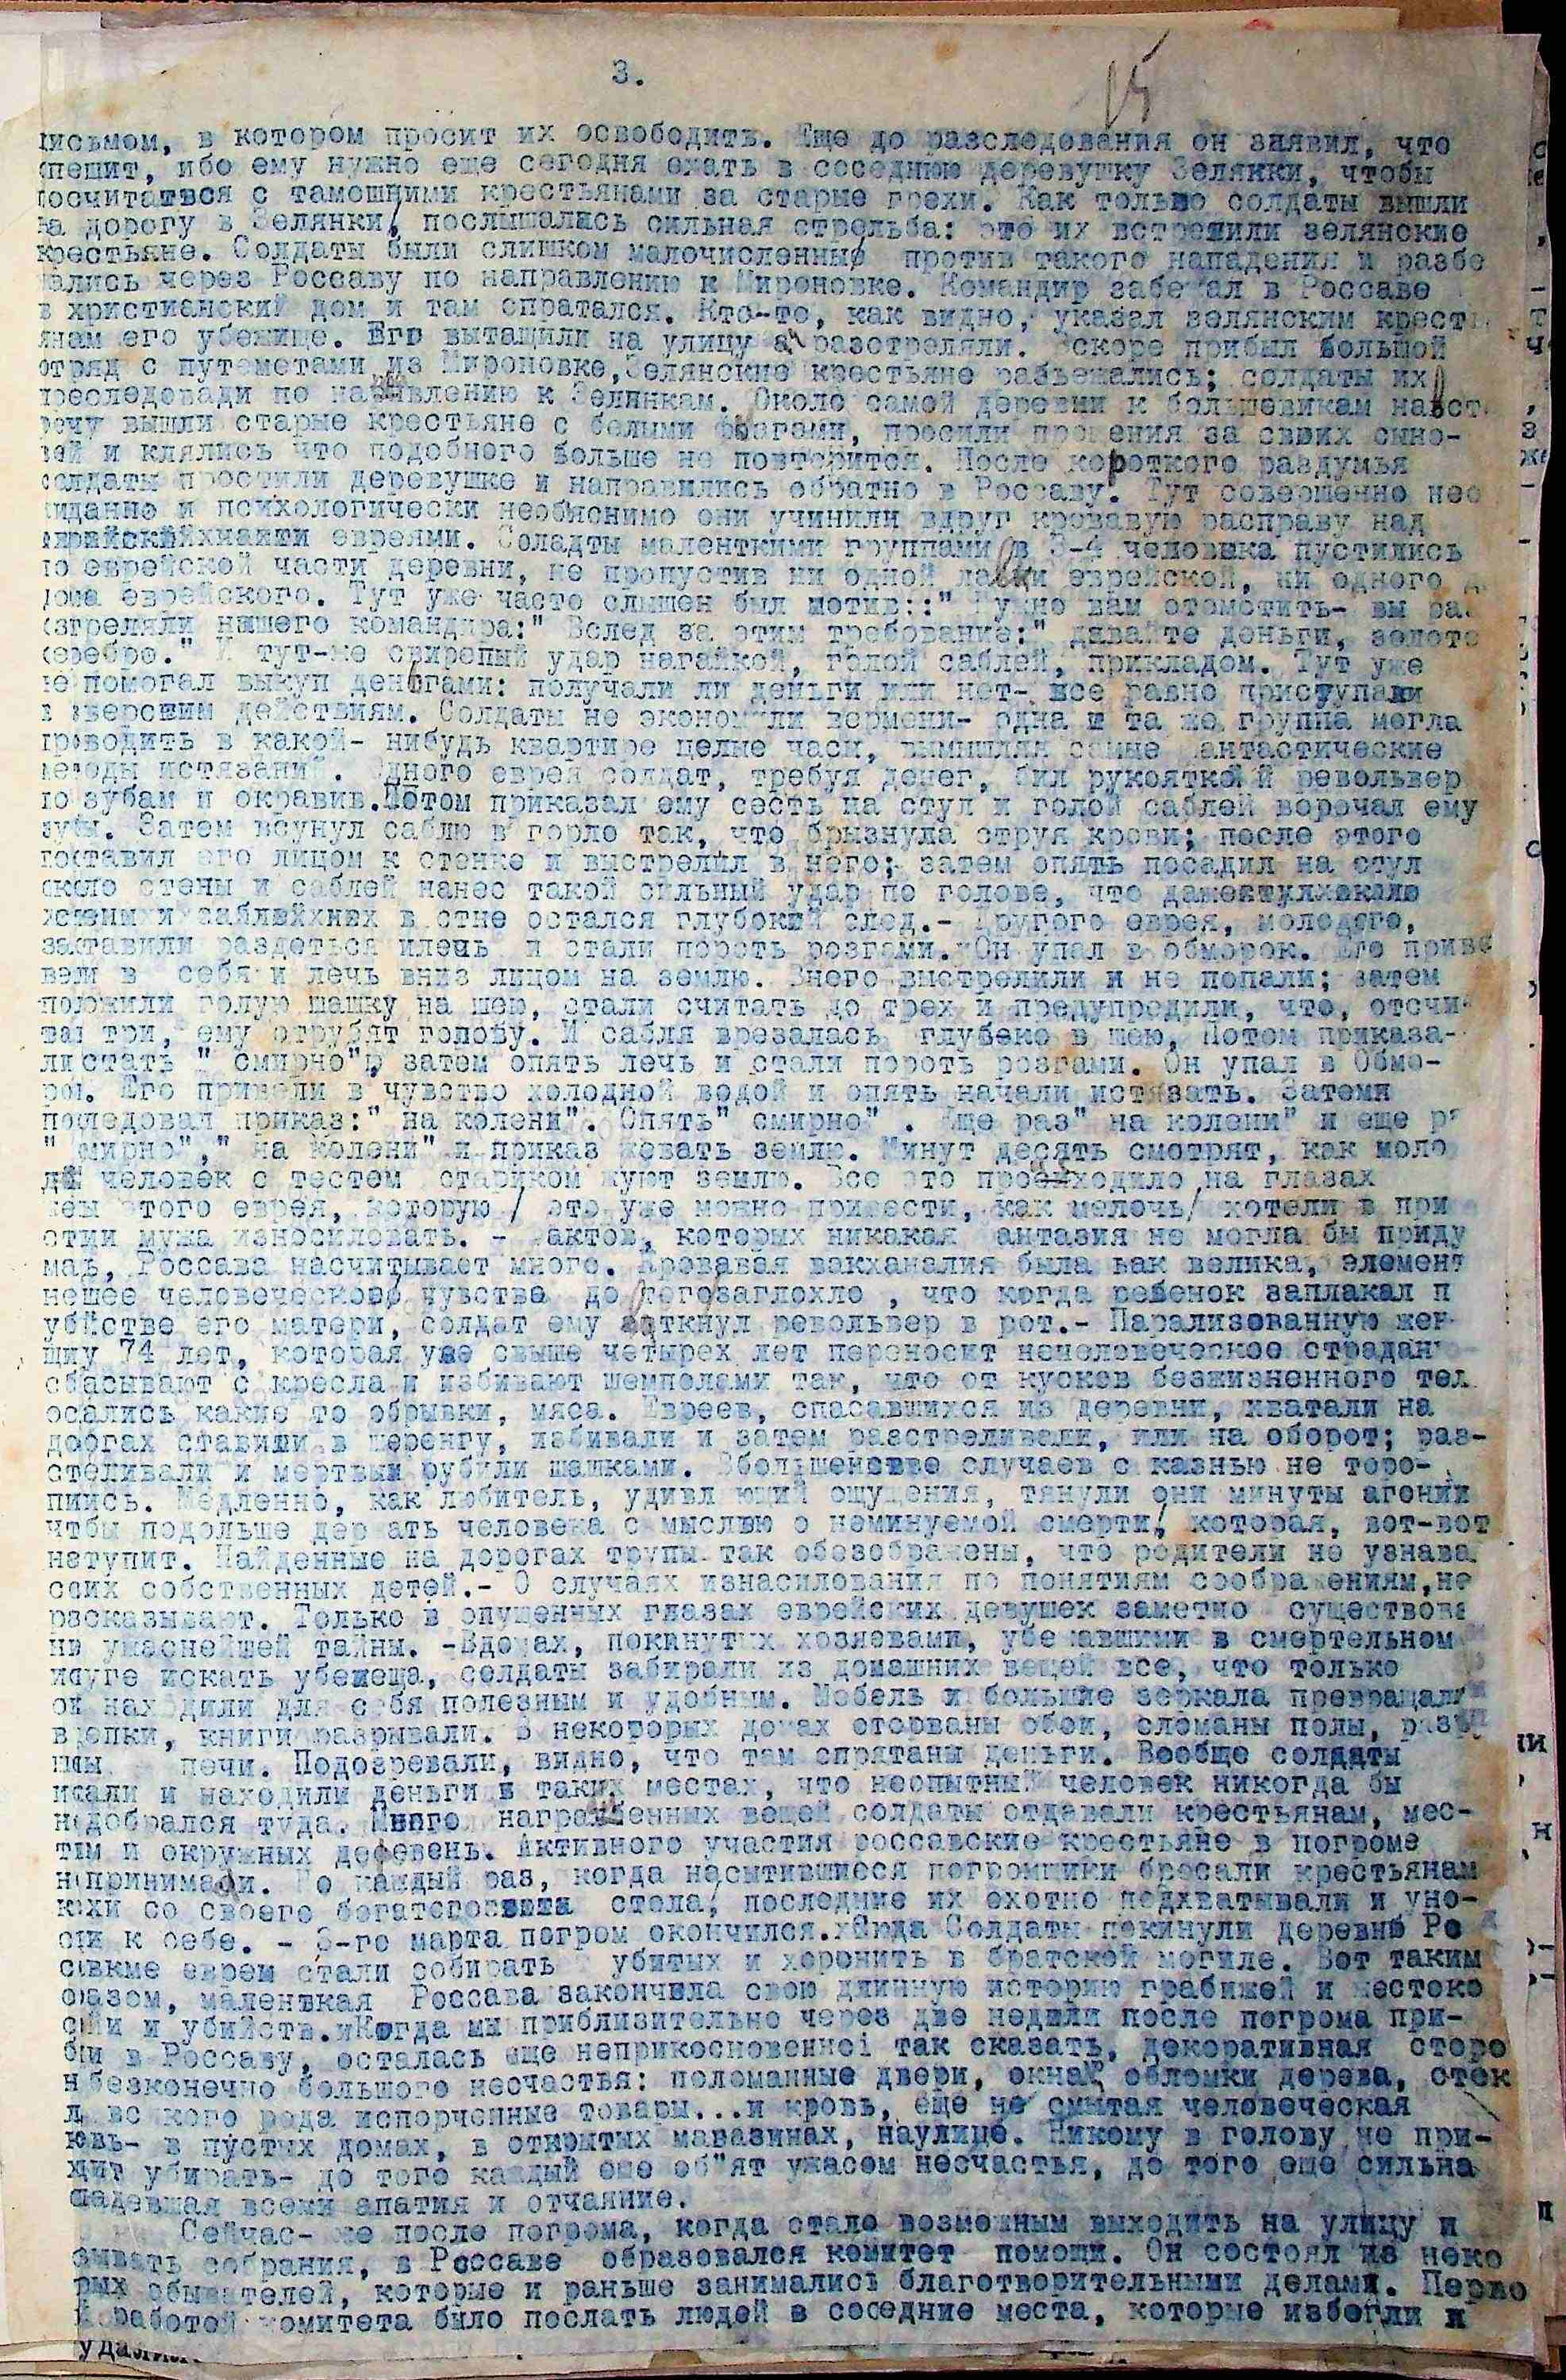 3.
15
письмом, в котором просит их освободить. Еще до разследования он заявил, что
спешит, ибо ему нужно еще сегодня ехать в соседнюю деревушку Зелянки, чтобы
посчитаться с тамошними крестьянами за старые грехи. Как только солдаты вышли
на дорогу в Зелянки, послышалась сильная стрельба: это их встретили зелянские
крестьяне. Солдаты были слишком малочисленны против такого нападения и разбе
жались через Россаву по направлению к Мироновке. Командир забежал в Россаве
в христианский дом и там спратался. Кто-то, как видно, указал зелянским кресть
янам его убежище. Его вытащили на улицу и разстреляли. Вскоре прибыл большой
отряд с пулеметами из Мироновке, Зелянские крестьяне разбежались; солдаты их
преследовади по направлению к Зелянкам. Около самой деревни к большевикам навст
речу вышли старые крестьяне с белыми флагами, просили прощения за своих сыно-
вей и клялись что подобного больше не повторится. После короткого раздумья
солдаты простили деревушке и направились обратно в Россаву. Тут совершенно нео
жиданно и психологически необяснимо они учинили вдруг кровавую расправу над
евреями. Соладты маленткими группами в 3-4 человека пустились
по еврейской части деревни, не пропустив ни одной лавки еврейской, ни одного д
дома еврейского. Тут уже часто слышен был мотив::" Нужно вам отомстить- вы рас
стреляли нашего командира:" Вслед за этим требование:" давайте деньги, золото
серебро." И тут-же свирепый удар нагайкой, голой саблей, прикладом. Тут уже
не помогал выкуп деньгами: получали ли деньги или нет- все равно приступали
к зверским действиям. Солдаты не экономили вермени- одна и та же группа могла
проводить в какой- нибудь квартире целые часы, вымышляя самые фантастические
методы истязаний. Одного еврея солдат, требуя денег, бил рукояткой револьвер
по зубам и окравив. Потом приказал ему сесть на стул и голой саблей ворочал ему
зубы. Затем всунул саблю в горло так, что брызнула струя крови; после этого
поставил его лицом к стенке и выстрелил в него; затем опять посадил на стул
около стены и саблей нанес такой сильный удар по голове, что даже
в стне остался глубокий след.- Другого еврея, молодого,
заставили раздеться илечь и стали пороть розгами. Он упал в обморок. Его приве
вели в себя и лечь вниз лицом на землю. Внего выстрелили и не попали; затем
положили голую шашку на шею, стали считать до трех и предупредили, что, отсчи-
тав три, ему отрубят голову. И сабля врезалась глубоко в шею, Потом приказа-
ли стать " смирно", затем опять лечь и стали пороть розгами. Он упал в Обмо-
рок. Его привели в чувство холодной водой и опять начали истязать. Затеми
последовал приказ:" на колени". Опять" смирно" . Еще раз" на колени" и еще ра
" смирно"," на колени" и приказ жевать землю. Минут десять смотрят, как моло
дой человек с тестем стариком жуют землю. Все это происходило на глазах
жены этого еврея, которую / это уже можно привести, как мелочь/ хотели в при
стии мужа износиловать. - Фактов, которых никакая фантазия не могла бы приду
мать, Россава насчитывает много. Кровавая вакханалия была так велика, элемент
нешее человеческое чувство до того заглохло , что когда ребенок заплакал п
убийстве его матери, солдат ему воткнул револьвер в рот.- Парализованную жен-
щину 74 лет, которая уже свыше четырех лет переносит нечеловеческое страдан
сбрасывают с кресла и избивают шемполами так, что от кусков безжизненного тел
остались какие то обрывки, мяса. Евреев, спасавшихся из деревни, хватали на
дорогах ставили в шеренгу, избивали и затем разстреливали, или на оборот; раз-
стреливали и мертвых рубили шашками. Вбольшенстве случаев с казнью не торо-
пились. Медленно, как любитель, удивляющий ощущения, тянули они минуты агонии
чтобы подольше держать человека с мыслью о неминуемой смерти, которая, вот-вот
наступит. Найденные на дорогах трупы так обезображены, что родители не узнава
своих собственных детей.- О случаях изнасилования по понятиям соображениям, не
рассказывают. Только в опущенных глазах еврейских девушек заметно существова
ние ужаснейшей тайны. -Вдомах, покинутых хозяевами, убежавшими в смертельном
испуге искать убежеща, солдаты забирали из домашних вещей все, что только
они находили для себя полезным и удобным. Мебель и большие зеркала превращали
в щепки, книги разрывали. В некоторых домах оторваны обои, сломаны полы, разру
шены печи. Подозревали, видно, что там спрятаны деньги. Вообще солдаты
искали и находили деньги в таких местах, что неопытный человек никогда бы
не добрался туда. Много награбленных вещей солдаты отдавали крестьянам, мес-
тным и окружных деревень. Активного участия россавские крестьяне в погроме
не принимали. Но каждый раз, когда насытившиеся погромщики бросали крестьянам
крохи со своего богатого стола, последние их охотно подхватывали и уно-
сили к себе. - 3-го марта погром окончился. Солдаты покинули деревню Ро
ссавкие евреи стали собирать убитых и хоронить в братской могиле. Вот таким
образом, маленькая Россава закончила свою длинную историю грабижей и жестоко
стей и убийств. Когда мы приблизительно через две недели после погрома при-
были в Россаву, осталась еще неприкосновенной так сказать, декоративная сторо
на безконечно большого несчастья: поломанные двери, окна, обломки дерева, стек
ла всякого рода испорченные товары...и кровь, еще не смытая человеческая
кровь- в пустых домах, в открытых мавазинах, наулице. Никому в голову не при-
ходит убирать- до того каждый еще об"ят ужасом несчастья, до того еще сильна
овладевшая всеми апатия и отчаяние.
Сейчас- же после погрома, когда стало возможным выходить на улицу и
созывать собрания, в Россаве образовался комитет помощи. Он состоял из неко
торых обывателей, которые и раньше занимались благотворительными делами. Перво
й работой комитета было послать людей в соседние места, которые избегли п